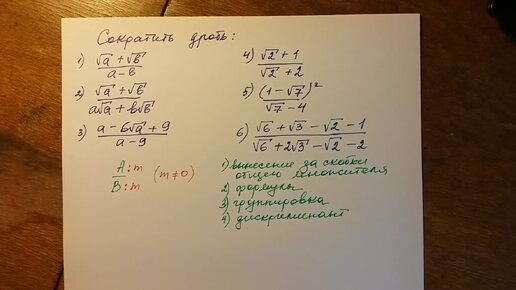 Сократить дробь:
1) (√a + √b)/(a − b)
2) (√a + √b)/(a√a + b√b)
3) (a − 6√a + 9)/(a − 9)
A:m/B:m (m≠0)
4) (√2 + 1)/(√2 + 2)
5) (1 − √7)²/(√7 − 4)
6) (√6 + √3 − √2 − 1)/(√6 + 2√3 − √2 − 2)
1) вынесение за скобки
общего множителя
2) формулы
3) группировка
4) дискриминант